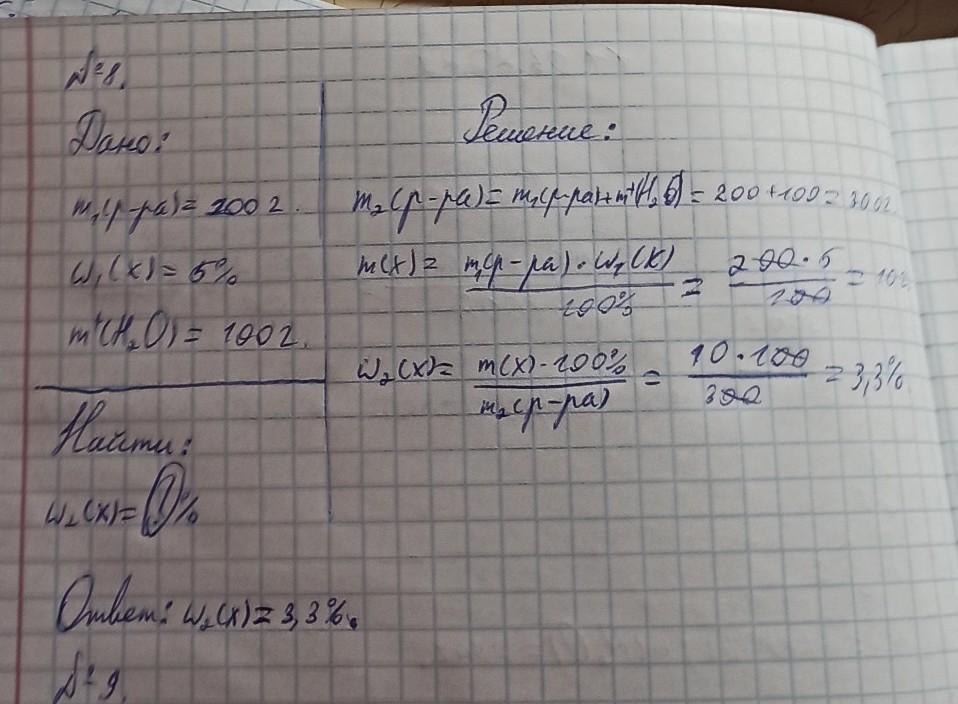 №8.
Дано:
m₁(р-ра)=200г.
ω₁(х)=5%
m⁺(H₂O)=100г.
Найти:
ω₂(х)=?%
Решение:
m₂(р-ра)=m₁(р-ра)+m⁺(H₂O)=200+100=300г
m(х)= m₁(р-ра)·ω₁(х) / 100% = 200·5 / 100 = 10г
ω₂(х)= m(х)·100% / m₂(р-ра) = 10·100 / 300 = 3,3%
Ответ: ω₂(х)=3,3%.
№9.